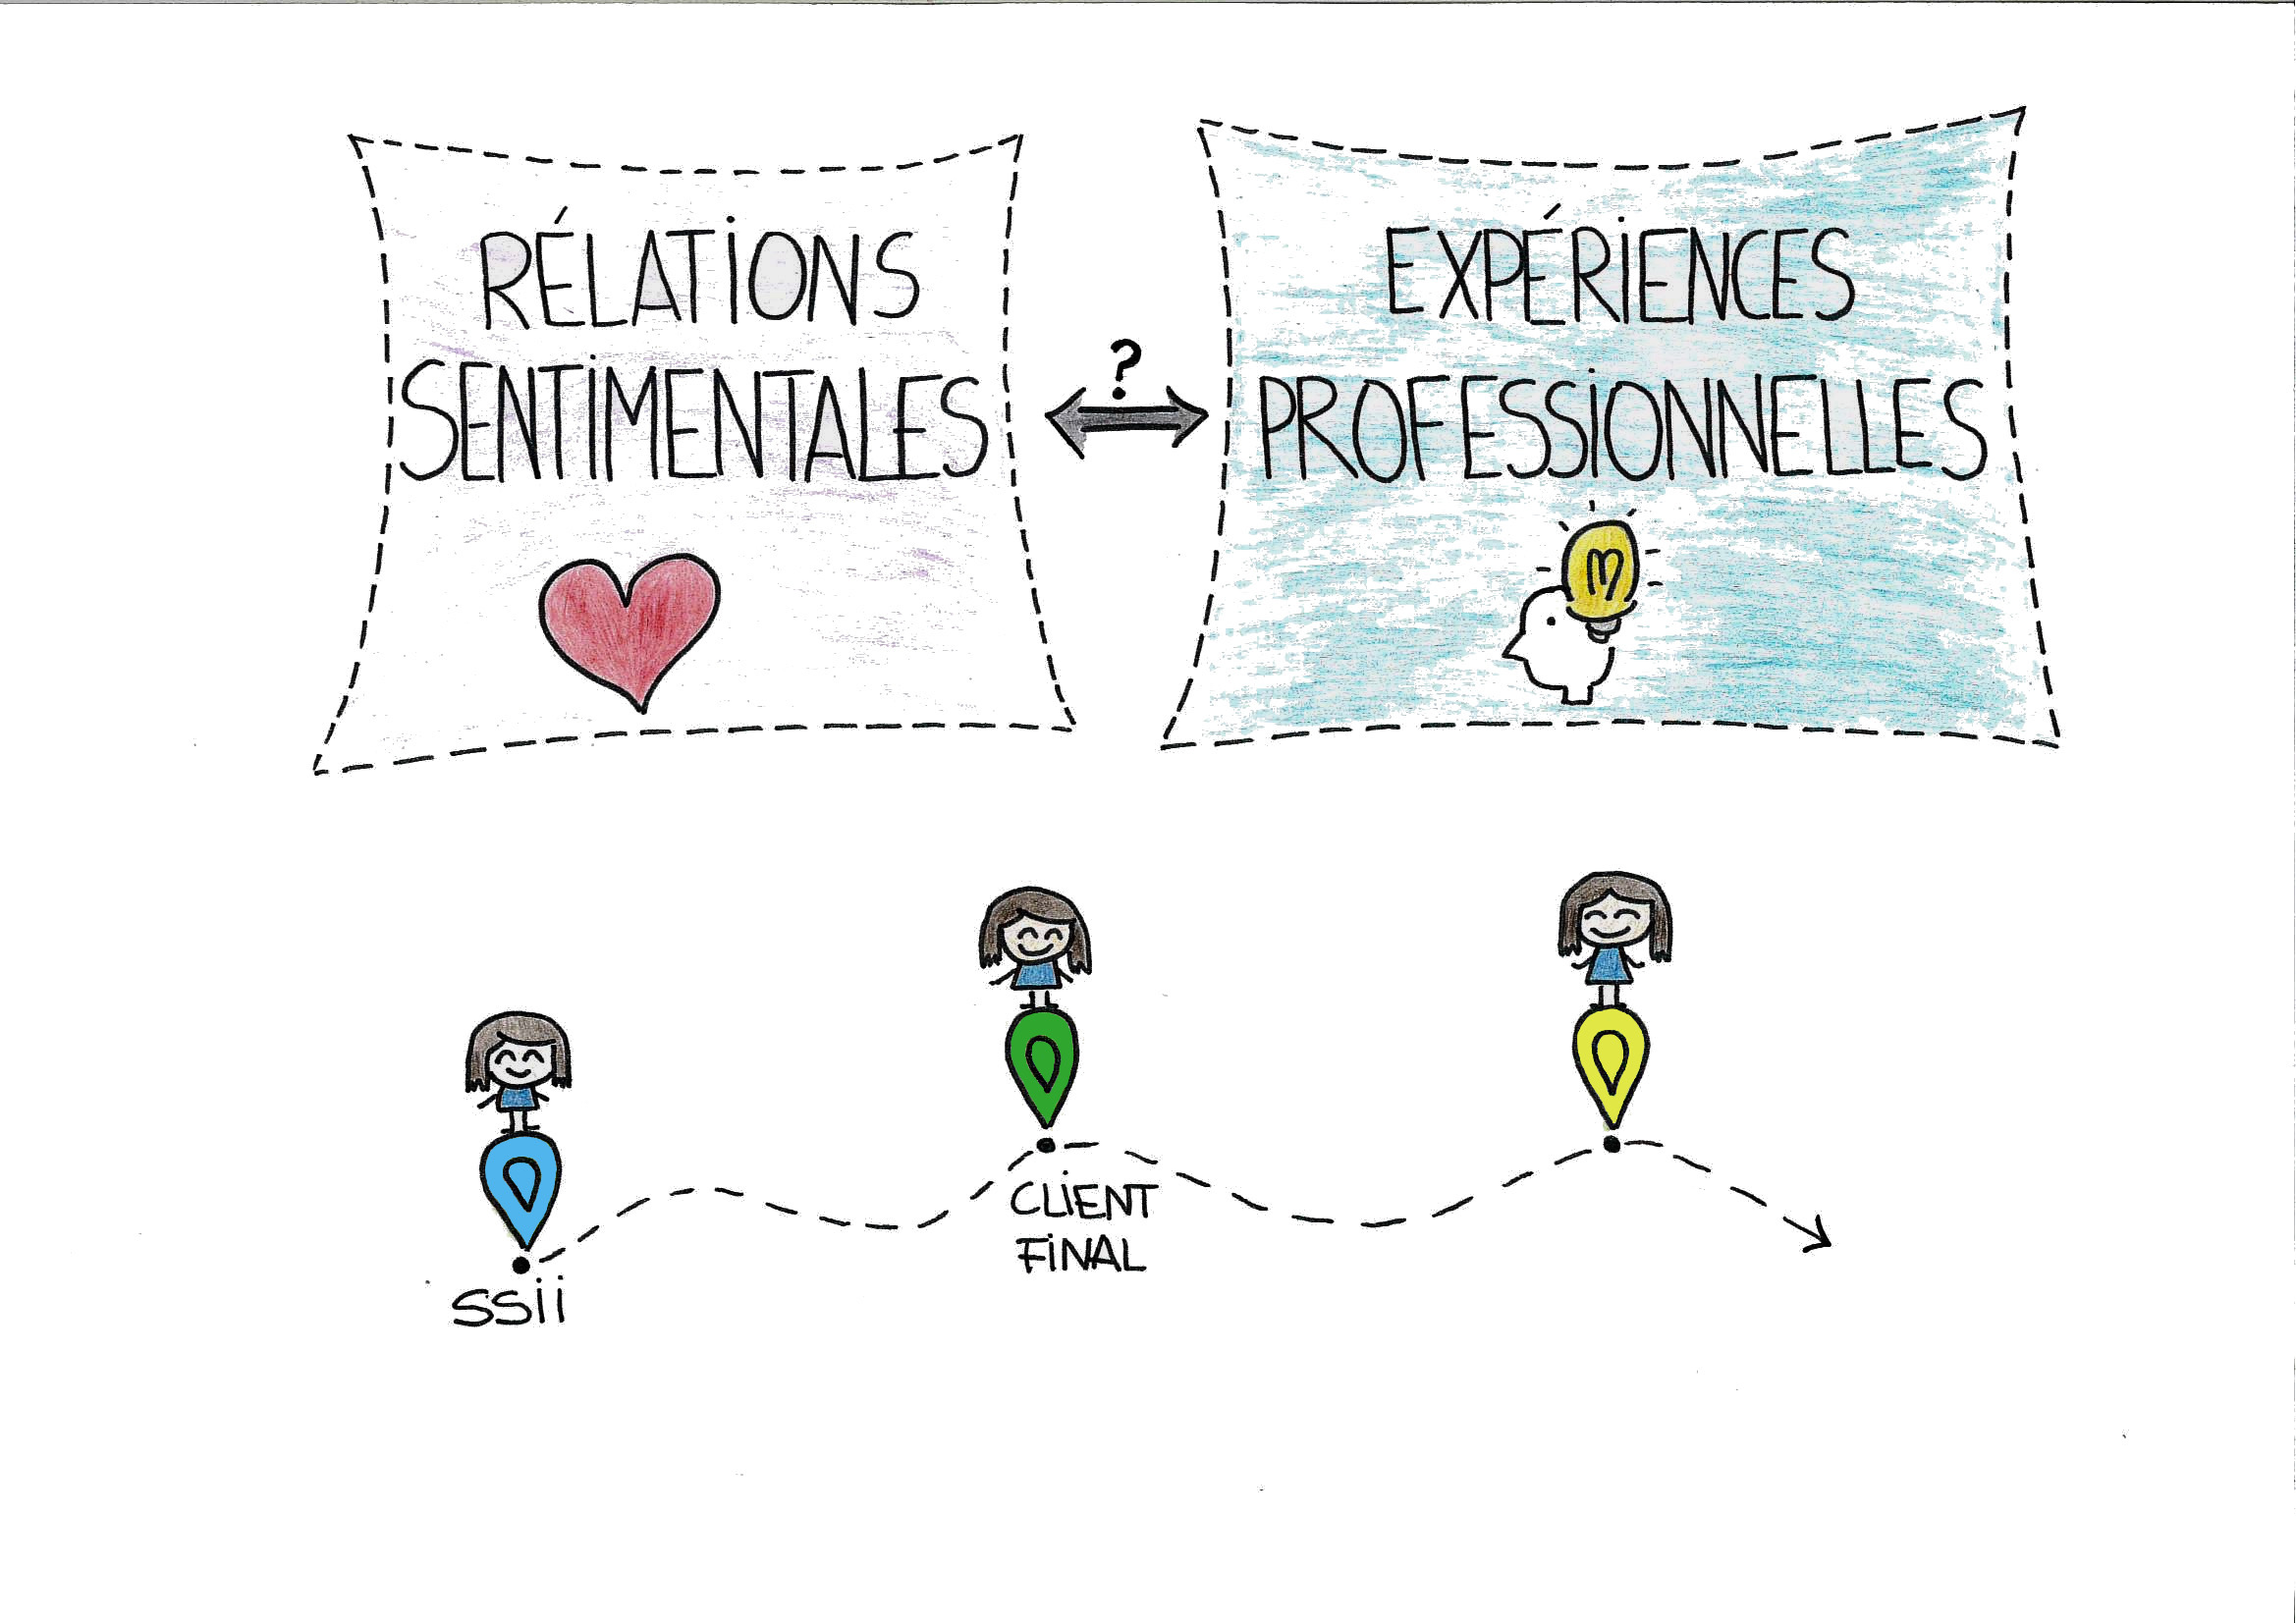 RÉLATIONS
SENTIMENTALES
?
EXPÉRIENCES
PROFESSIONNELLES
SSII
CLIENT
FINAL